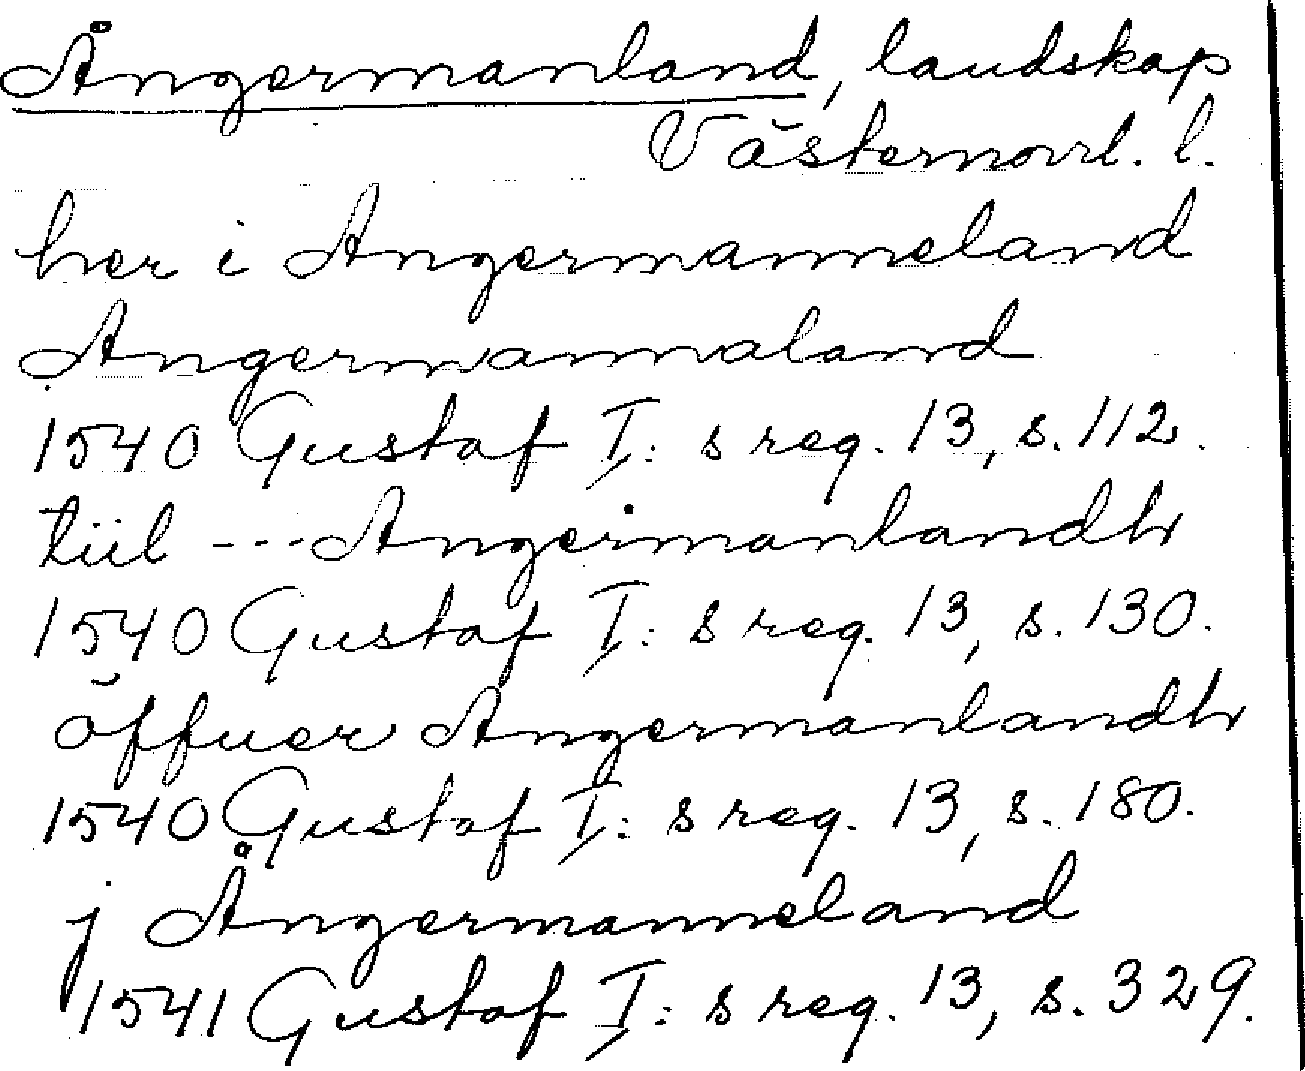 Ångermanland, landskap
Västernorrl. l.
her i Angermanneland
Angermannaland
1540 Gustaf I: s reg. 13, s. 112.
tiil --- Angermanlandh
1540 Gustaf I: s reg. 13, s. 130.
öffuer Angermanlandh
1540 Gustaf I: s reg. 13, s. 180.
j Ångermanneland
1541 Gustaf I: s reg. 13, s. 329.